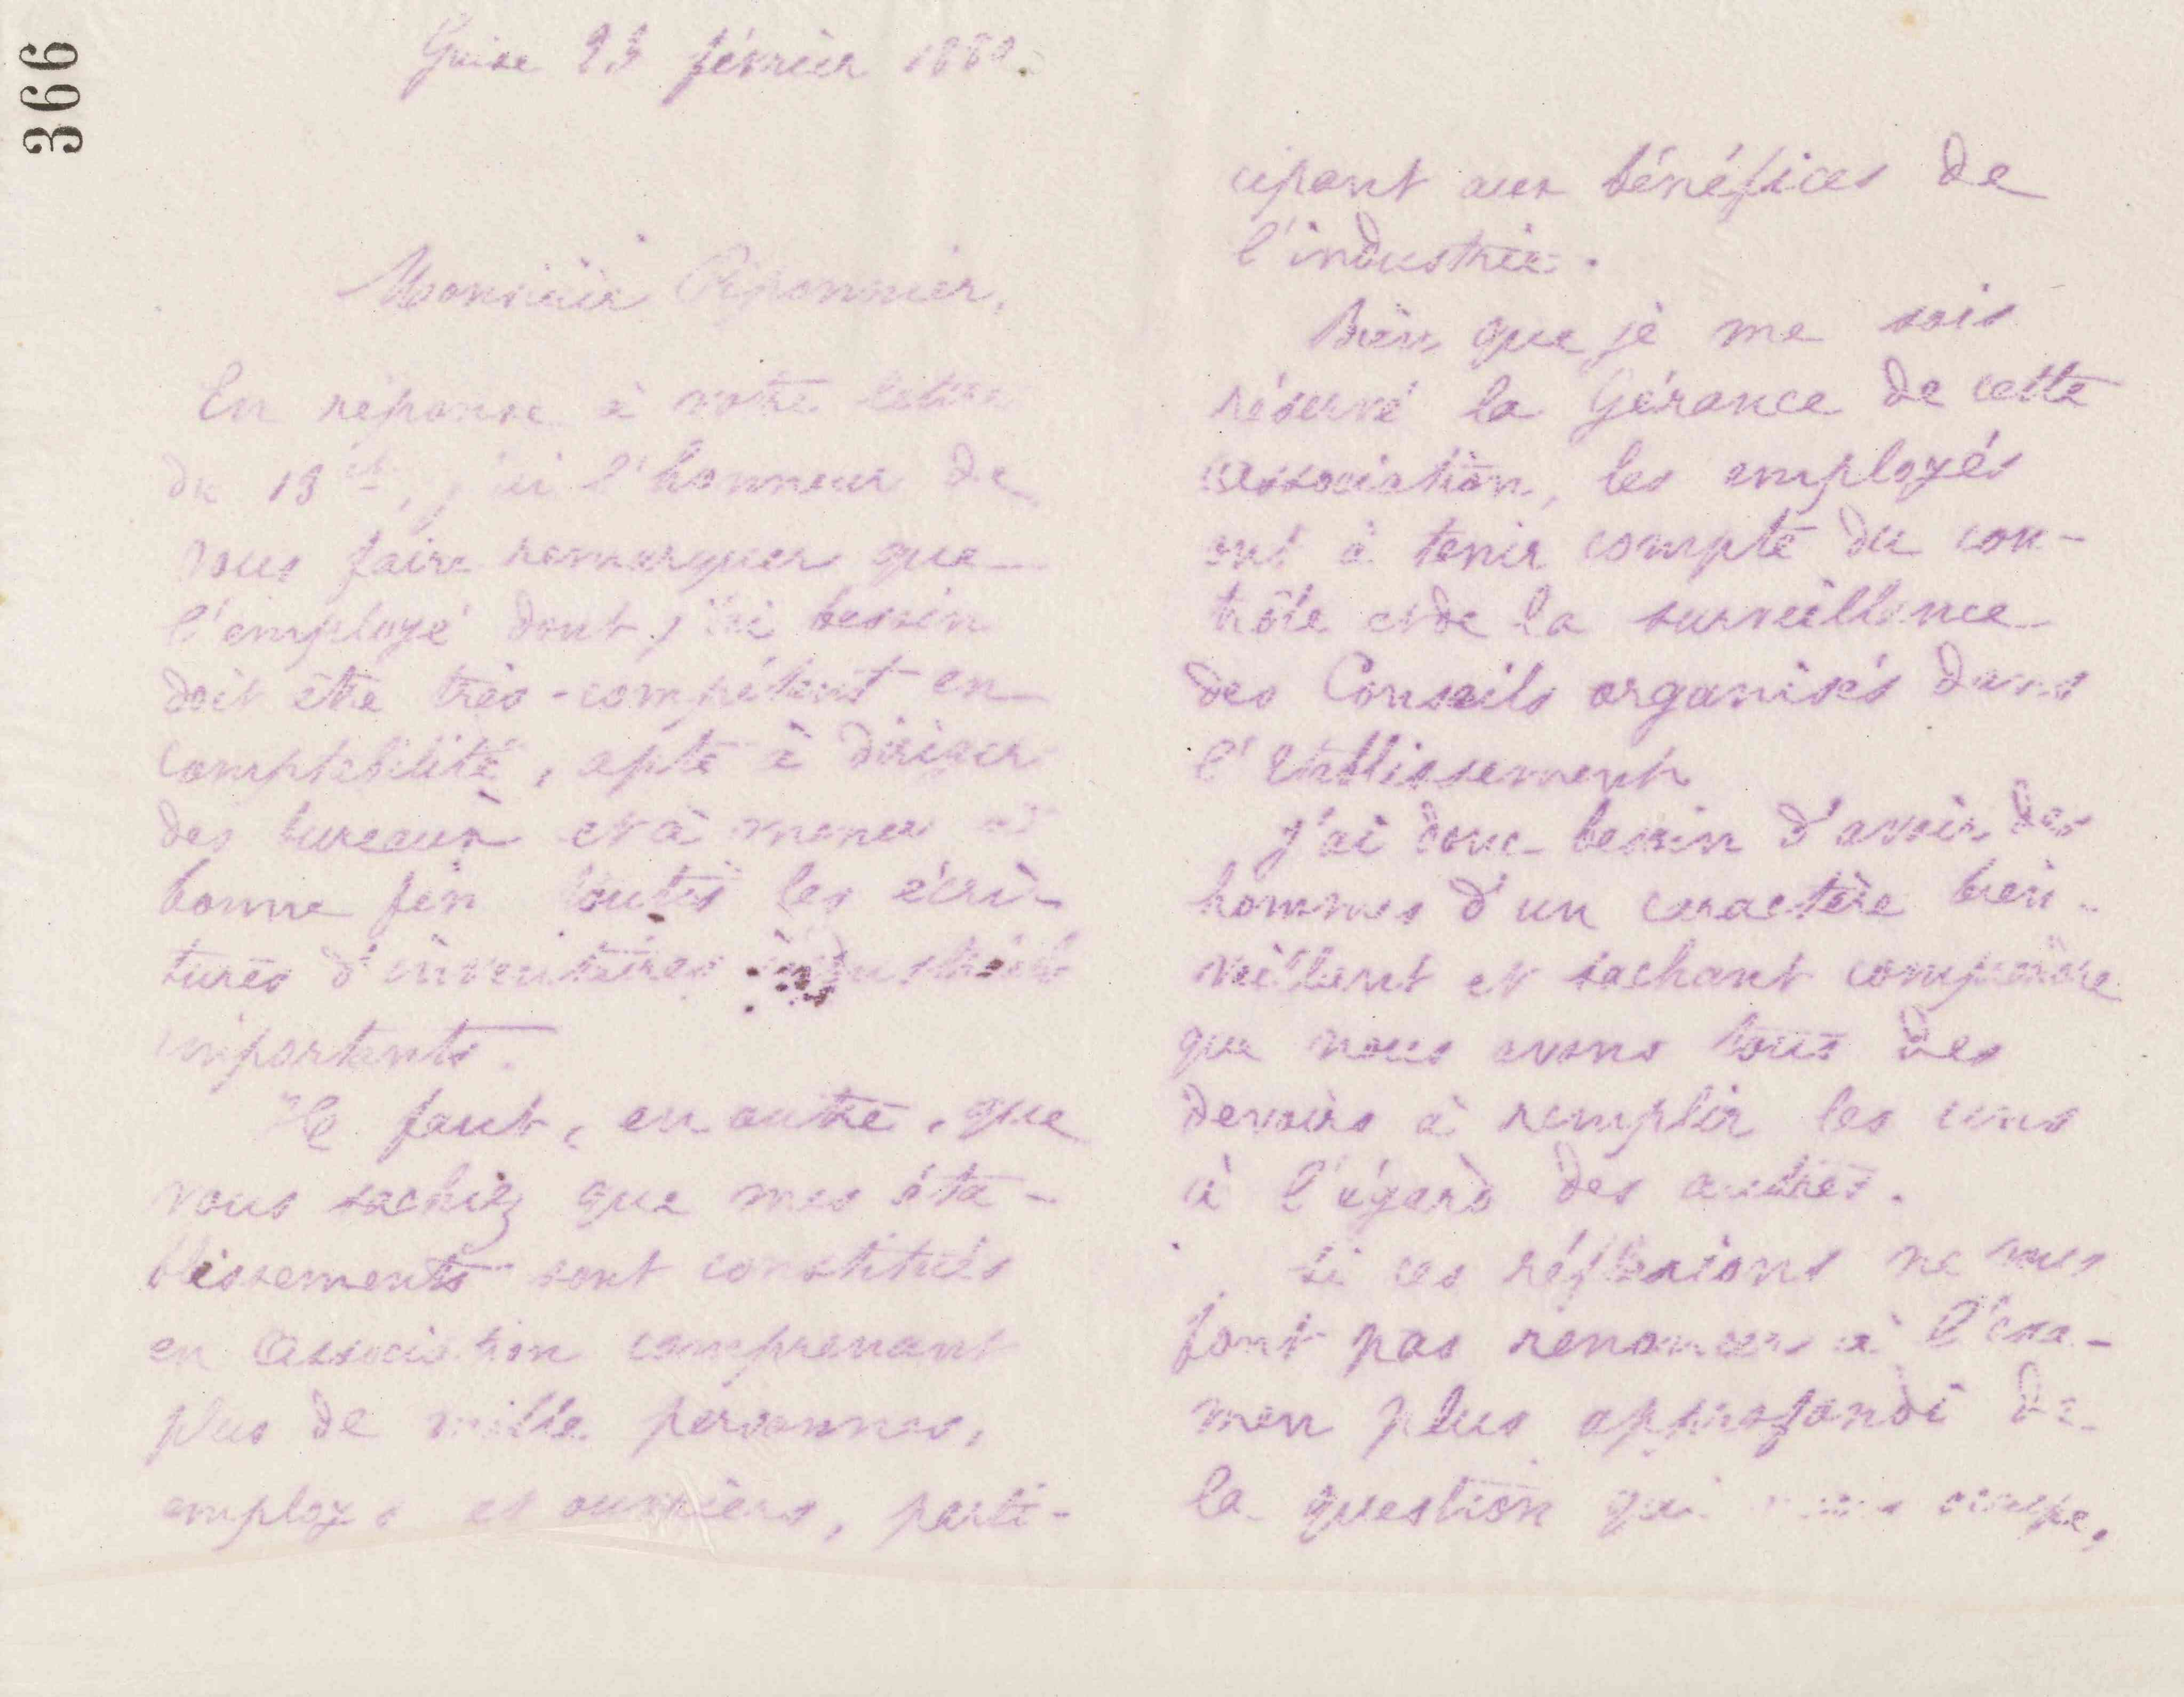 366
Guise 23 février 1880.
Monsieur Piponnier,
En réponse à votre lettre
du 19 ct, j'ai l'honneur de
vous faire remarquer que
l'employé dont j'ai besoin
doit être très-compétent en
comptabilité, apte à diriger
des bureaux et à mener à
bonne fin toutes les écri-
tures d'inventaires industriels
importants.
Il faut, en outre, que
vous sachiez que mes éta-
blissements sont constitués
en association comprenant
plus de mille personnes,
employés et ouvriers, parti-
cipant aux bénéfices de
l'industrie.
Bien que je me sois
réservé la Gérance de cette
association, les employés
ont à tenir compte du con-
trôle et de la surveillance
des Conseils organisés dans
l'Etablissement
J'ai donc besoin d'avoir des
hommes d'un caractère bien-
veillant et sachant comprendre
que nous avons tous des
devoirs à remplir les uns
à l'égard des autres.
Si ces réflexions ne vous
font pas renoncer à l'exa-
men plus approfondi de
la question qui nous occupe,